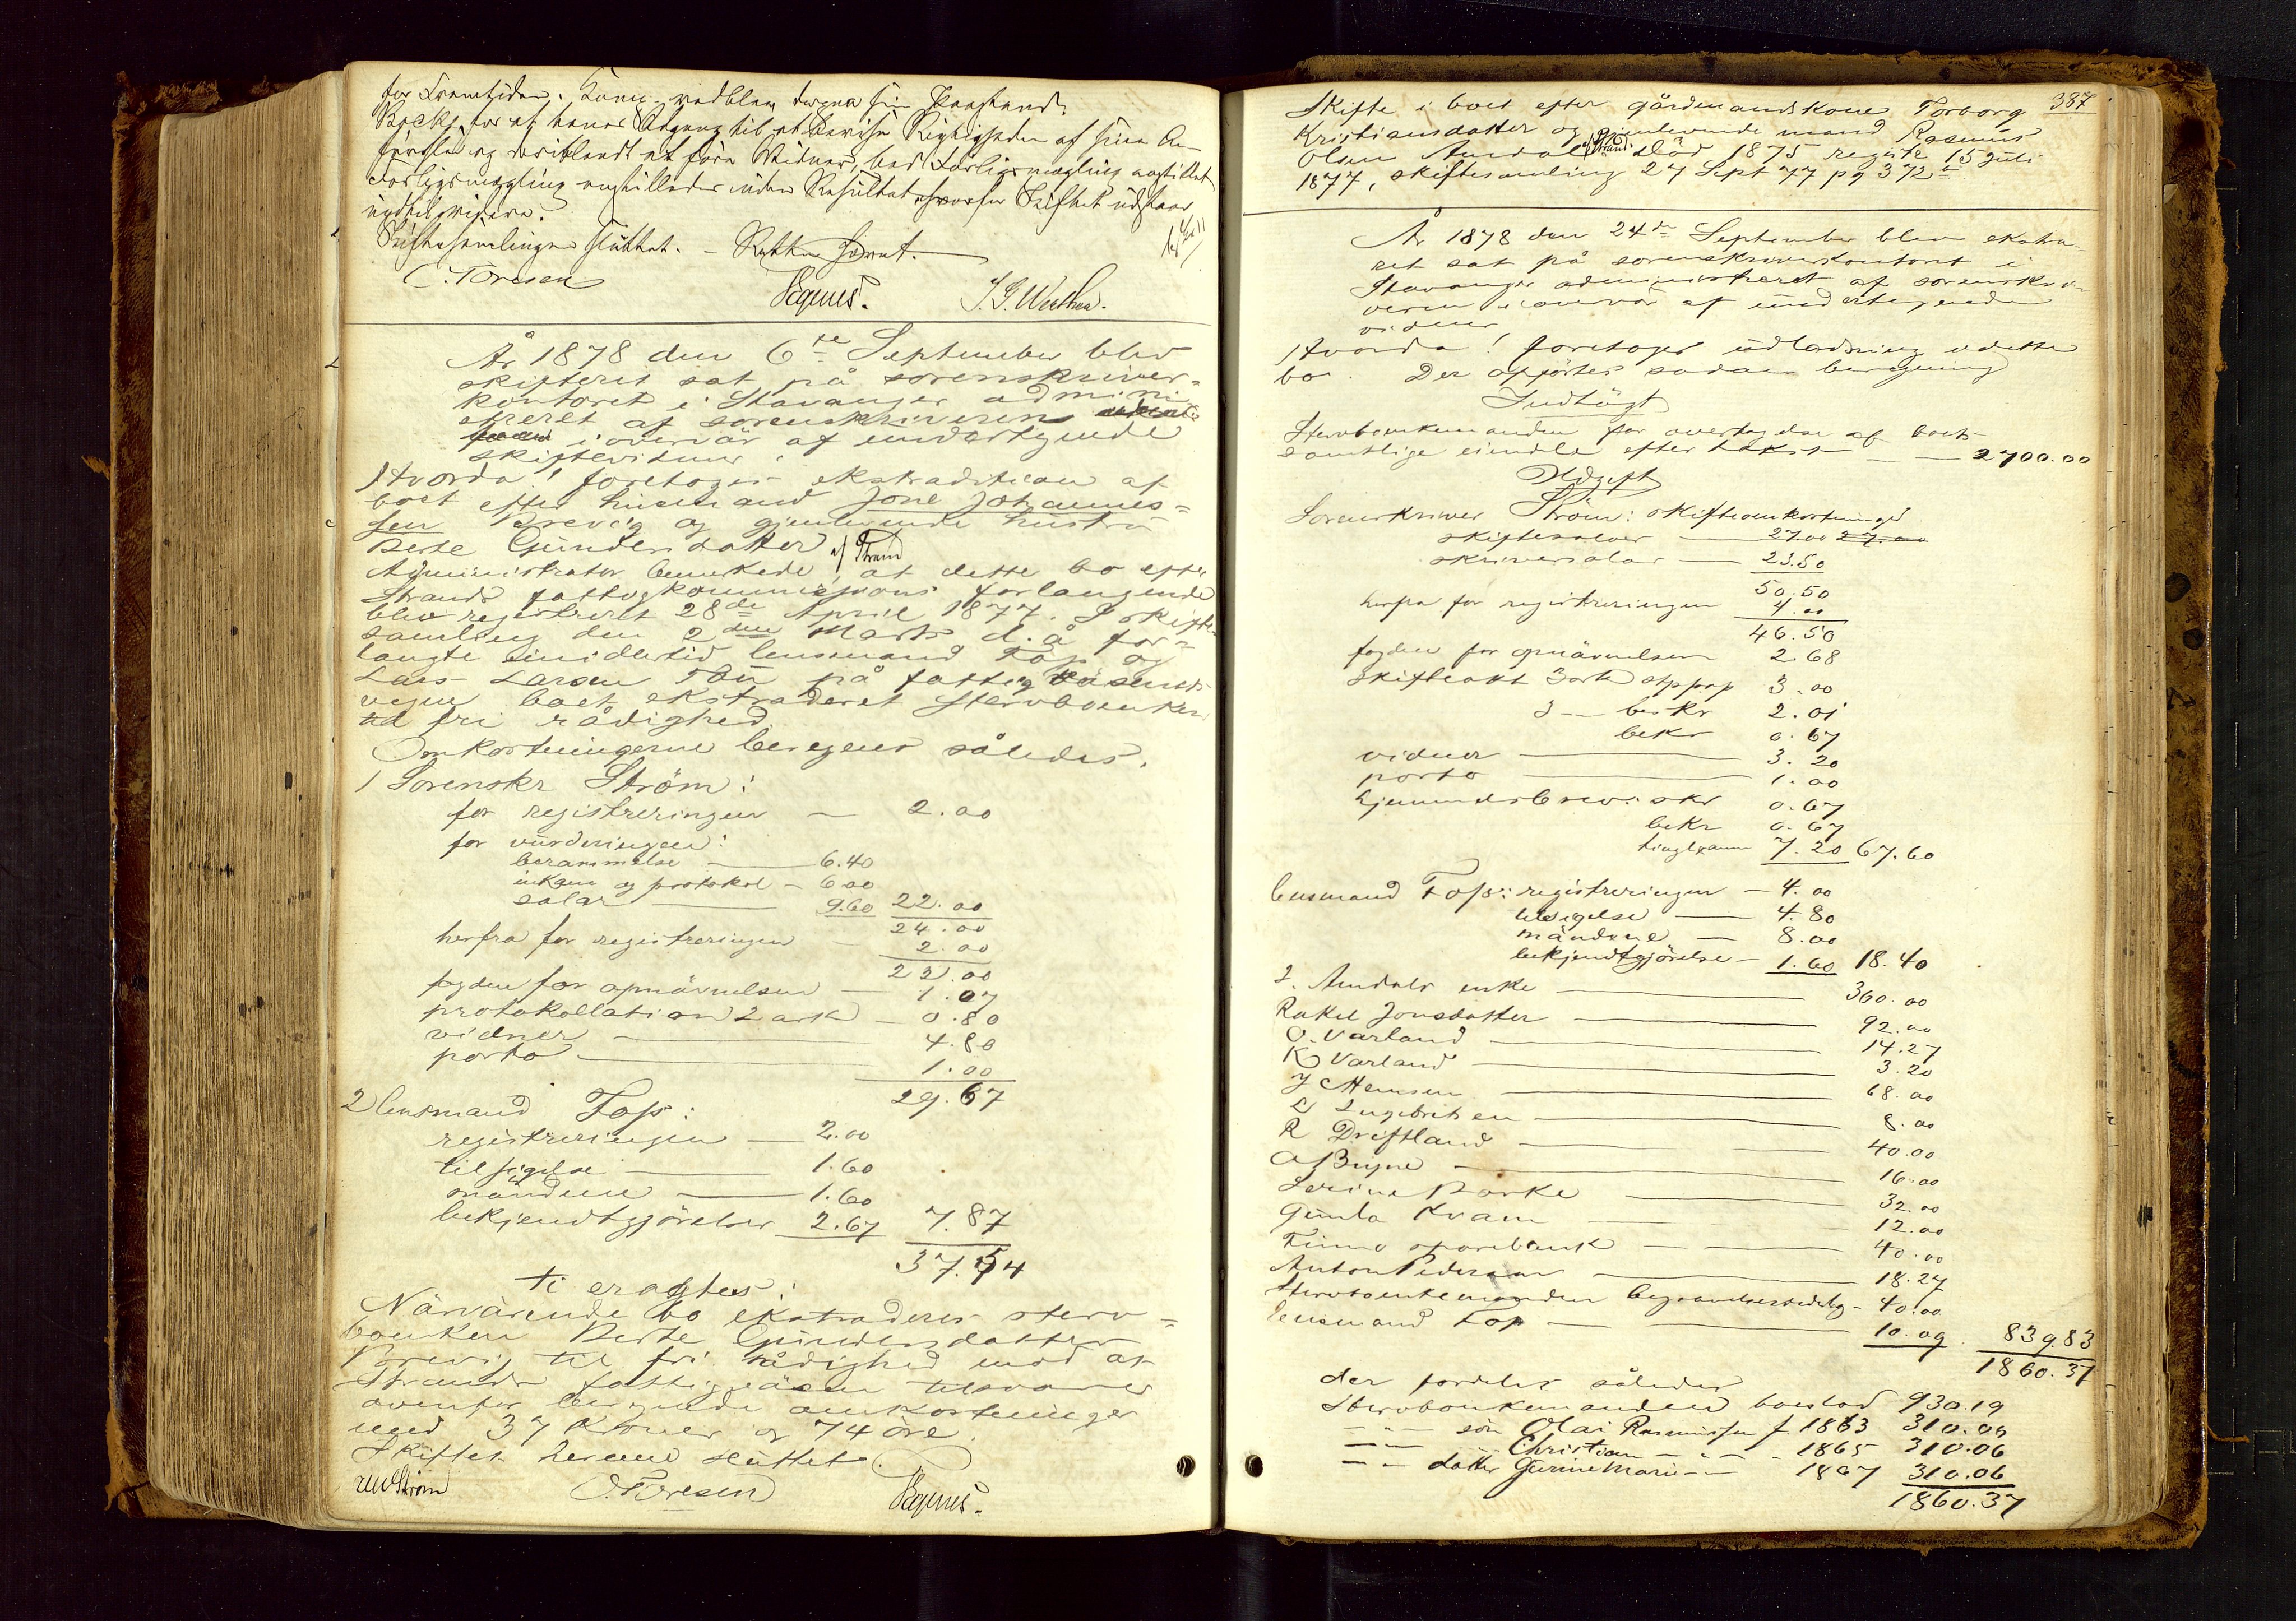 for Fremtiden.
Bocks
Forligsmægling anstilledes uden Resultat, hvorfor Skiftet udstaar
indtil videre.
Skiftesamlingen sluttet. – Retten hævet.
O. Toresen Vagnes. J. G. Wersland.
År 1878 den 6te September blev
skifteret sat på sorenskriver-
kontoret i Stavanger admini-
streret af sorenskriveren
i overvär af undertegnede
skiftevidner.
Hvorda! foretoges ekstradition af
boet efter husmand Jone Johannes-
sen Brevig og gjenlevende hustru
Berte Gundersdatter af Strand
Administrator bemerkede, at dette bo efter
Strands fattigkommissions forlangende
blev registreret 28de April 1877. I skifte-
samling den 2den Marts d. å for-
langte imidlertid lensmand Fop og
Lars Larsen Tou på fattigväsenets
vegne boet ekstraderet stervboenken
til fri rådighed.
Omkostningerne beregnes således.
1 Sorenskr Ström:
for registreringen — 2.00
for vurderingen:
berammelse — 6.40
inkam og protokol – 6.00
salar — 9.60 22.00
24.00
herfra for registreringen – 2.00
22.00
fogden for opnävnelsen — 1.07
protokollation 2 ark – 0.80
vidner — 4.80
porto — 1.00
29.67
2 lensmand Fop:
registreringen — 2.00
tilsigelse — 1.60
mändene — 1.60
bekjendtgjörelser 2.67 7.87
37.54
ti eragtes:
Närvärende bo ekstraderes sterv-
boenken Berte Gundersdatter
Brevig til fri rådighed mod at
Strands fattigväsen tilsvarer
ovenfor beregnede omkostninger
med 37 Kroner og 74 öre.
Skiftet hermed sluttet.
Ström O. Toresen Vagnes.
387
Skifte i boet efter gårdmandskone Torborg
Kristiansdatter og gjenlevende mand Rasmus
Olsen Amdal af Strand död 1875 registr 15 Juli
1877, skiftesamling 27 Sept 77 pg 372
År 1878 den 24de September blev ekstra-
ret sat på sorenskriverkontoret i
Stavanger administreret af sorenskri-
veren i overvär af undertegnede
vidner
Hvorda! foretoges udlodning i dette
bo. Der opförtes sådan beregning
Indtägt
Stervboenkemanden for overtagelse af boets
samtlige eiendele efter takst — 2700.00
Udgift
Sorenskriver Ström: skifteomkostninger
skiftesalar — 27.00 27.00
skriversalar — 23.50
50.50
herfra for registreringen 4.00
46.50
fogden for opnävnelsen 2.68
skifteakt 3 ark stppap 3.00
3 — beskr 2.01
bekr 0.67
vidner — 3.20
porto — 1.00
hjemmelsbrev: skr 0.67
bekr 0.67
tinglxam 7.20 67.60
lensmand Fop: registreringen — 4.00
tilsigelse — 4.80
mändene — 8.00
bekjendtgjörelse – 1.60 18.40
Amdals enke — 360.00
Rakel Jonsdatter — 92.00
O. Varland — 14.27
K Varland — 3.20
— 68.00
Ingebretsen — 8.00
R Driftland — 40.00
O Bryne — 16.00
Serine Barke — 32.00
Gunla Kvam — 12.00
Finnø sparebank — 40.00
Anton Pedersen — 18.27
Stervboenkemanden begravelsesudlæg – 40.00
lensmand Fop — 10.09 839.83
1860.37
der fordeles således
Stervboenkemanden boeslod 930.19
– " – sön Olai Rasmussen f 1863 310.06
– " – Christian – " – 1865 310.06
– " – datter Gurine Marie – " – 1867 310.06
1860.37